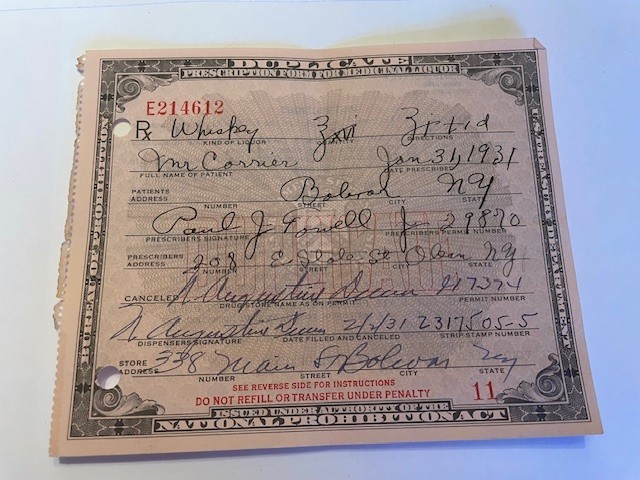 DUPLICATE
PRESCRIPTION FORM FOR MEDICINAL LIQUOR
E214612
Rx Whiskey ℥xvi
KIND OF LIQUOR QUANTITY DIRECTIONS
Carrier Jan 31, 1931
FULL NAME OF PATIENT DATE PRESCRIBED
PATIENTS ADDRESS Bolivar NY
NUMBER STREET CITY STATE
Paul J 29870
PRESCRIBERS SIGNATURE PRESCRIBERS PERMIT NUMBER
PRESCRIBERS ADDRESS 208 E. State St Olean NY
NUMBER STREET CITY STATE
CANCELED N. Augustus
DRUG STORE NAME AS ON PERMIT PERMIT NUMBER
N. Augustus 2/2/31 2317505-5
DISPENSERS SIGNATURE DATE FILLED AND CANCELLED STRIP STAMP NUMBER
STORE ADDRESS 338 Main St Bolivar NY
NUMBER STREET CITY STATE
SEE REVERSE SIDE FOR INSTRUCTIONS
DO NOT REFILL OR TRANSFER UNDER PENALTY 11
ISSUED UNDER AUTHORITY OF THE
NATIONAL PROHIBITION ACT
BUREAU OF PROHIBITION
U.S. TREASURY DEPARTMENT